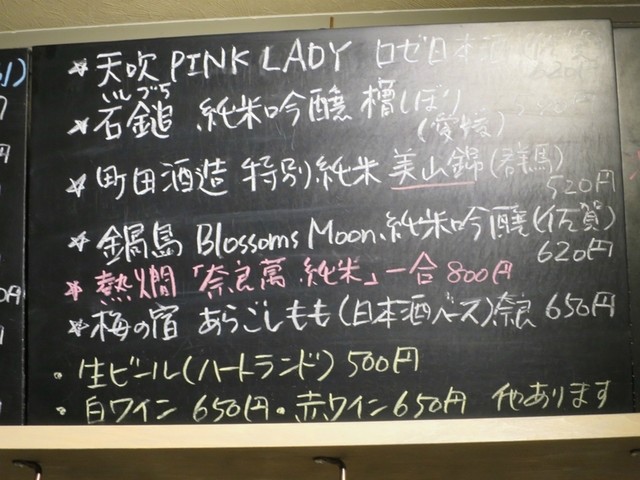 ★ 天吹 PINK LADY ロゼ日本酒
620円
いしづち
★ 石鎚 純米吟醸 槽しぼり
(愛媛)
★ 町田酒造 特別純米 美山錦(群馬)
520円
★ 鍋島 Blossoms Moon. 純米吟醸(佐賀)
620円
★ 熱燗「奈良萬 純米」一合 800円
★ 梅の宿 あらごしもも(日本酒ベース)奈良 650円
・生ビール(ハートランド) 500円
・白ワイン 650円・赤ワイン 650円 他あります